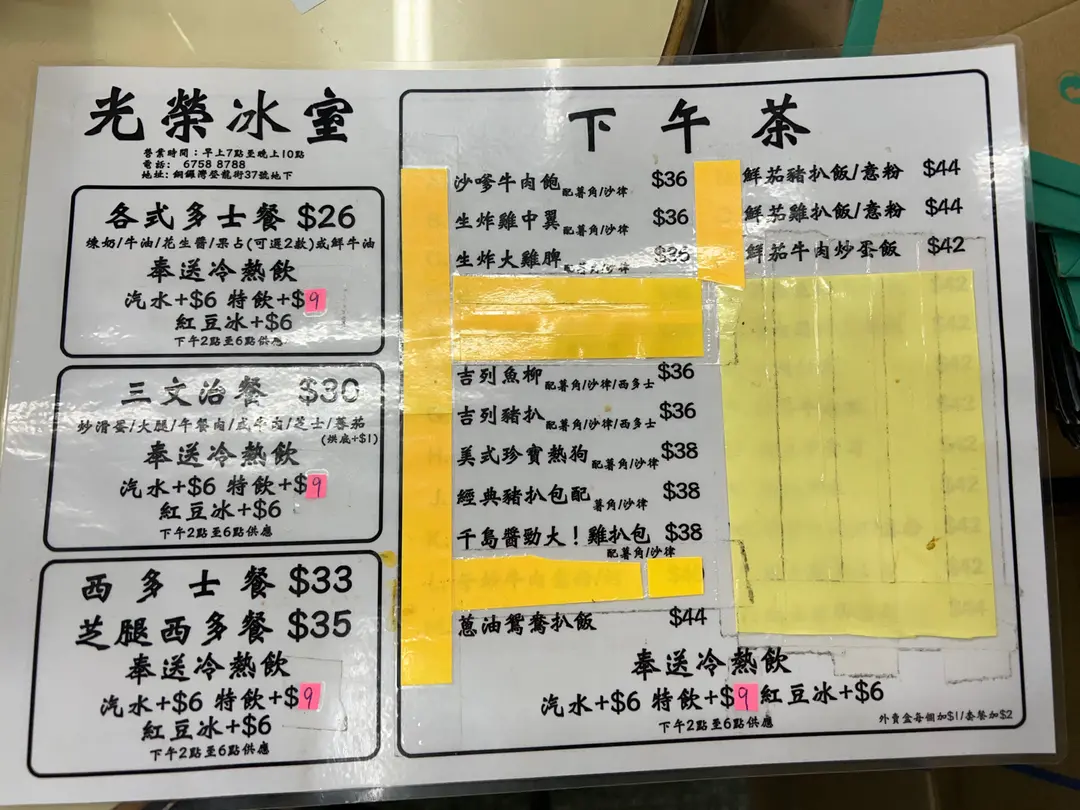 光榮冰室
營業時間：早上7點至晚上10點
電話： 6758 8788
地址: 銅鑼灣登龍街37號地下
各式多士餐 $26
煉奶/牛油/花生醬/果占(可選2款)或鮮牛油
奉送冷熱飲
汽水+$6 特飲+$9
紅豆冰+$6
下午2點至6點供應
三文治餐 $30
炒滑蛋/火腿/午餐肉/咸牛肉/芝士/蕃茄
(烘底+$1)
奉送冷熱飲
汽水+$6 特飲+$9
紅豆冰+$6
下午2點至6點供應
西多士餐 $33
芝腿西多餐 $35
奉送冷熱飲
汽水+$6 特飲+$9
紅豆冰+$6
下午2點至6點供應
下午茶
沙嗲牛肉飽配薯角/沙律 $36
生炸雞中翼配薯角/沙律 $36
生炸大雞脾配薯角/沙律 $36
吉列魚柳配薯角/沙律/西多士 $36
吉列豬扒配薯角/沙律/西多士 $36
美式珍寶熱狗配薯角/沙律 $38
經典豬扒包配薯角/沙律 $38
千島醬勁大！雞扒包 $38
配薯角/沙律
蔥油鴛鴦扒飯 $44
鮮茄豬扒飯/意粉 $44
鮮茄雞扒飯/意粉 $44
鮮茄牛肉炒蛋飯 $42
奉送冷熱飲
汽水+$6 特飲+$9 紅豆冰+$6
下午2點至6點供應
外賣盒每個加$1/套餐加$2